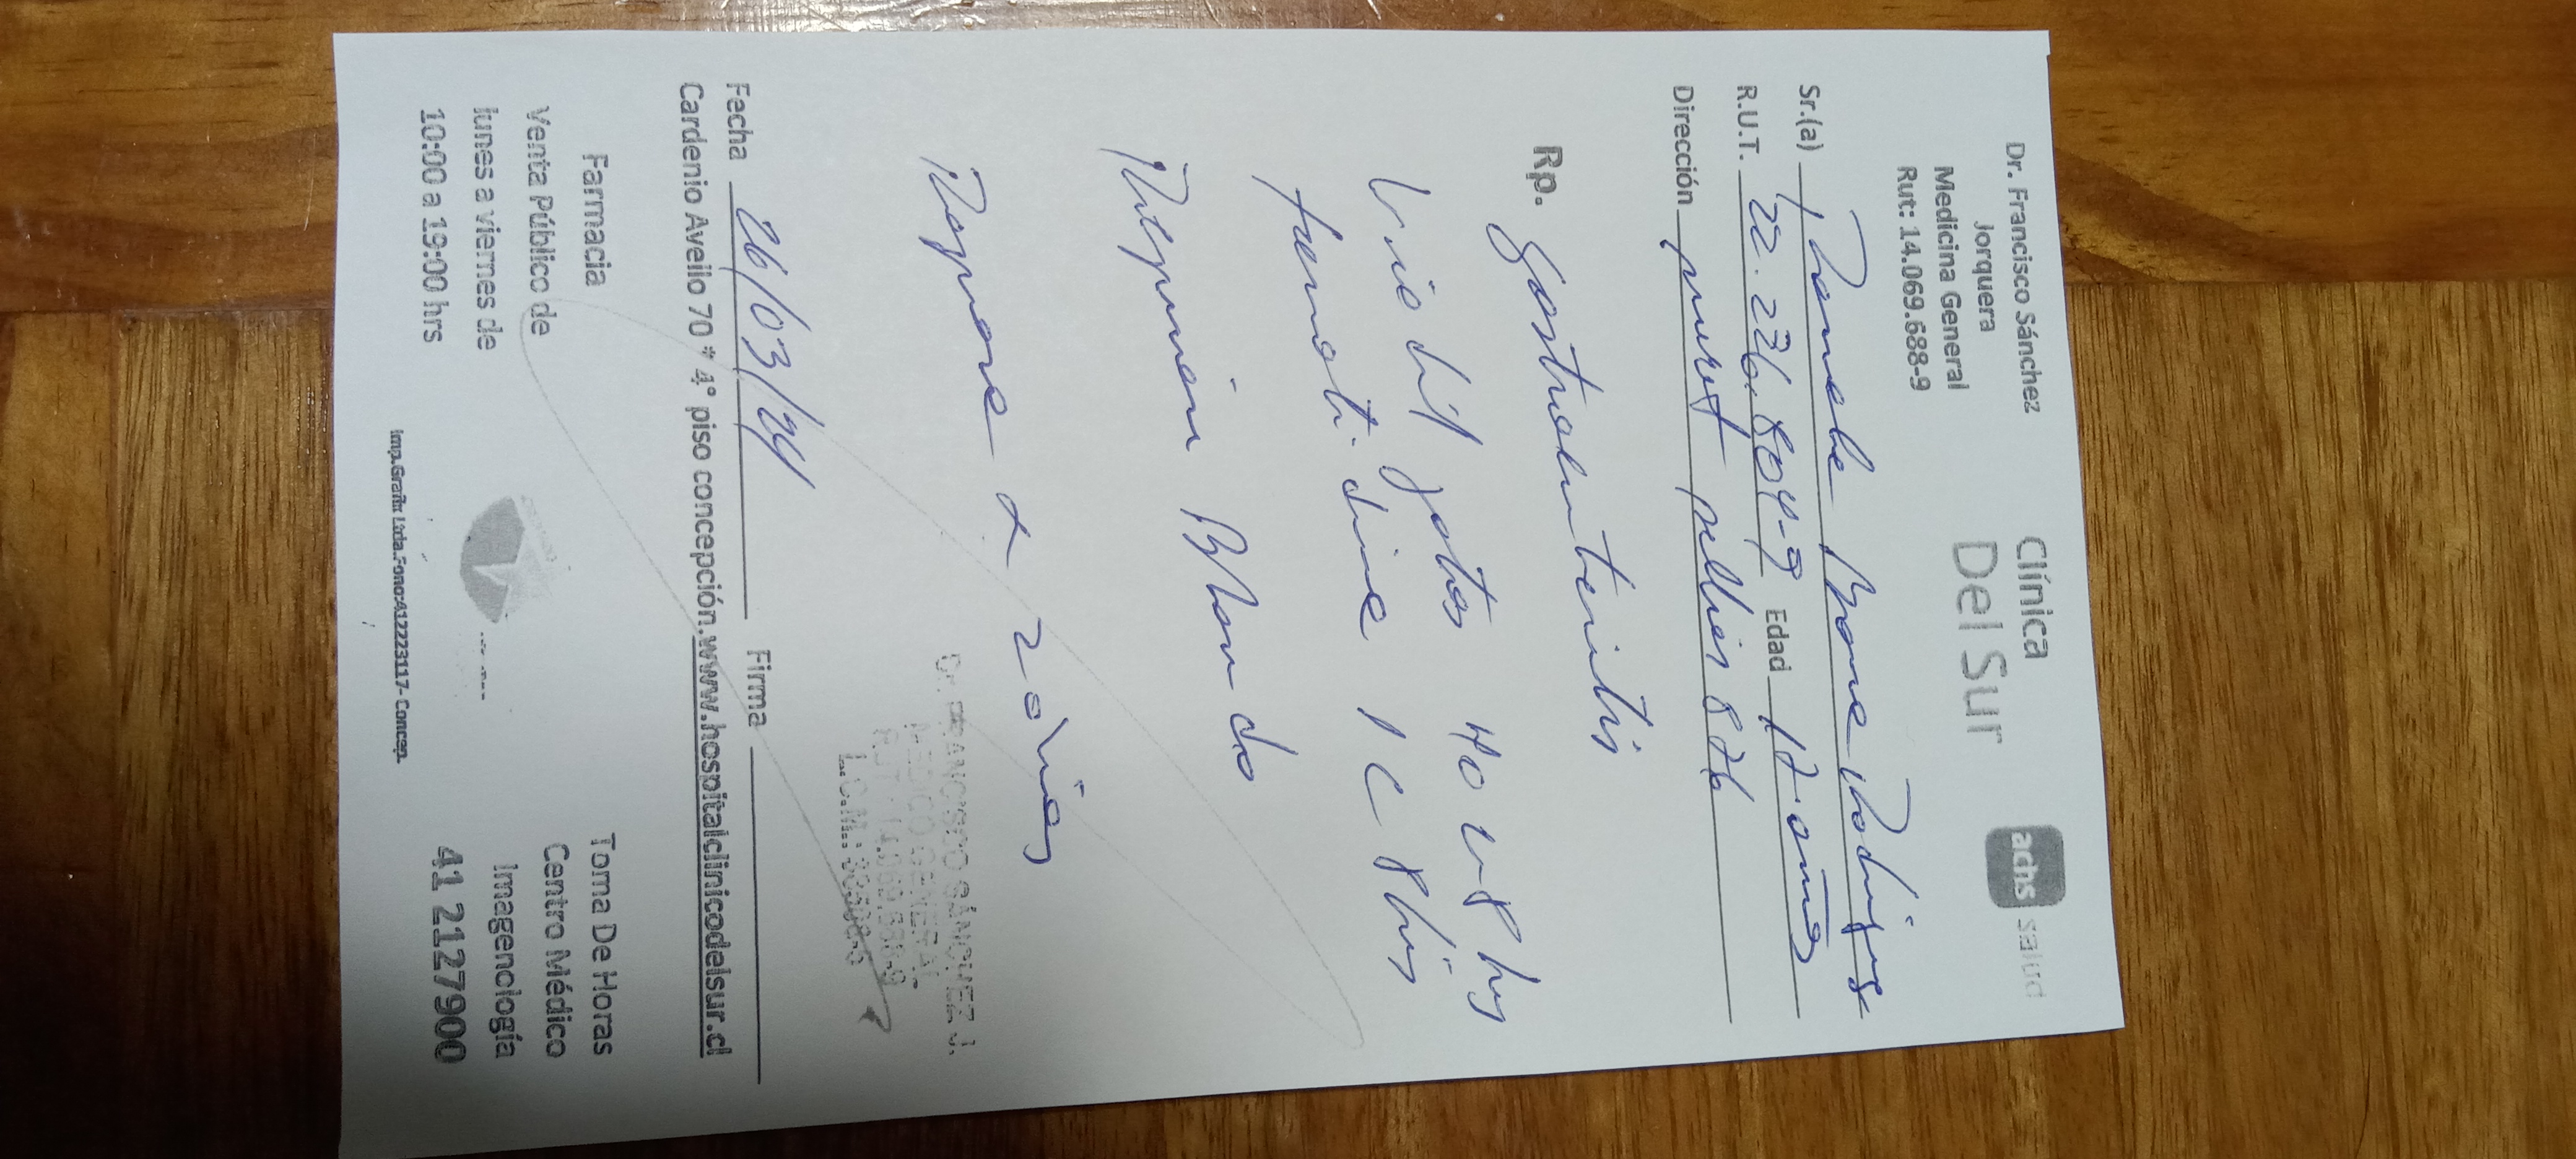 Dr. Francisco Sánchez
Jorquera
Medicina General
Rut: 14.069.688-9
Clínica
Del Sur
achs salud
Sr.(a)
R.U.T. 22.236.804-9 Edad 17 años
Dirección 876
Rp. Gastroenteritis
Viadil gotas 40 c/8 hrs
famotidina 1 c 8 hrs
Regimen Blando
Reposo x 2 días
Fecha 26/03/24 Firma
Dr. FRANCISCO SÁNCHEZ J.
MEDICO GENERAL
Cardenio Avello 70 * 4° piso concepción.www.hospitalclinicodelsur.cl
Farmacia
Venta Público de
lunes a viernes de
10:00 a 19:00 hrs
Toma De Horas
Centro Médico
Imagenología
41 2127900
Imp.Grafic Ltda.Fono:412223117- Concep.